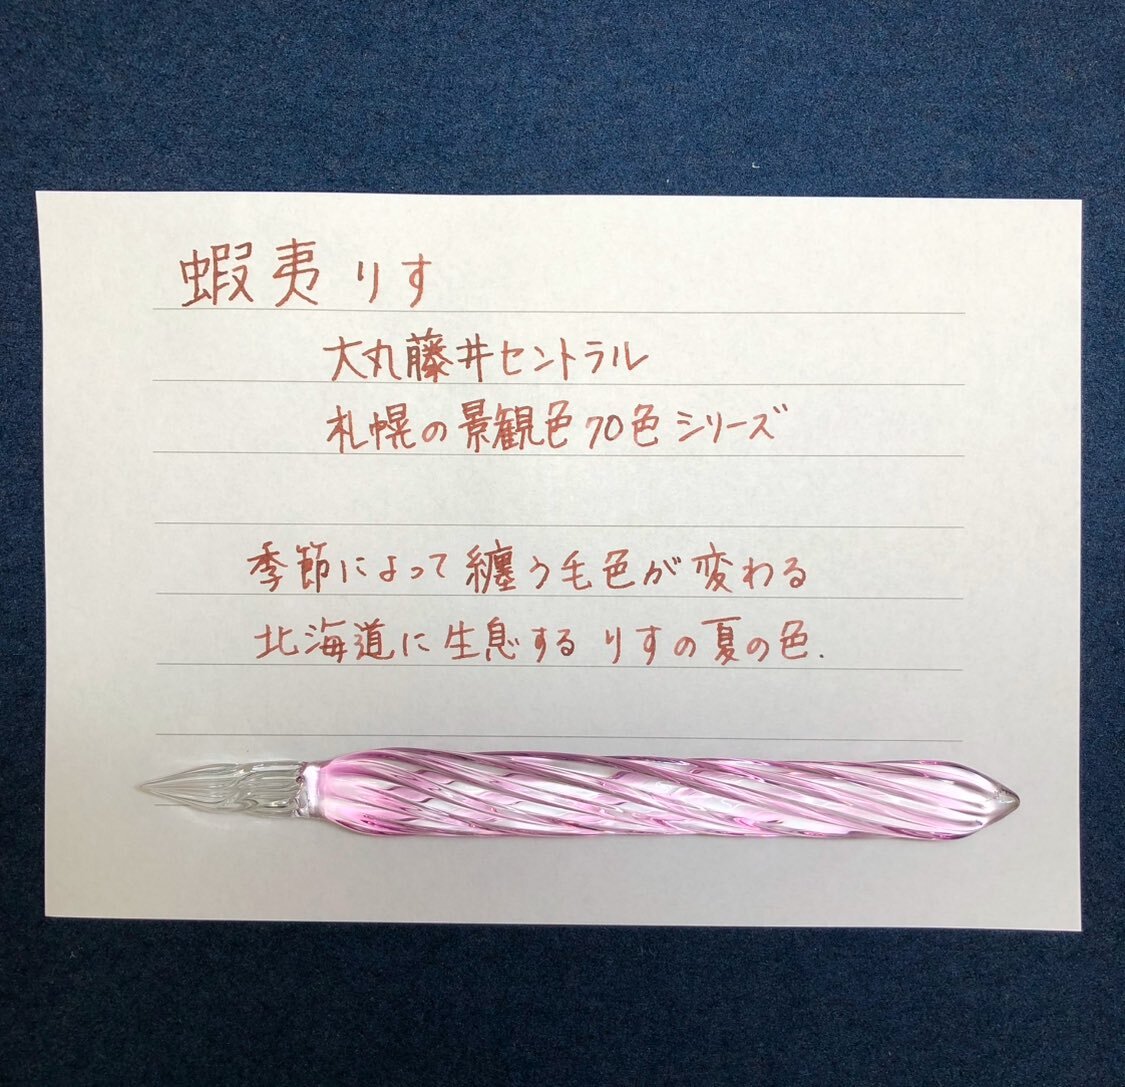 蝦夷りす
大丸藤井セントラル
札幌の景観色70色シリーズ
季節によって纏う毛色が変わる
北海道に生息するりすの夏の色.